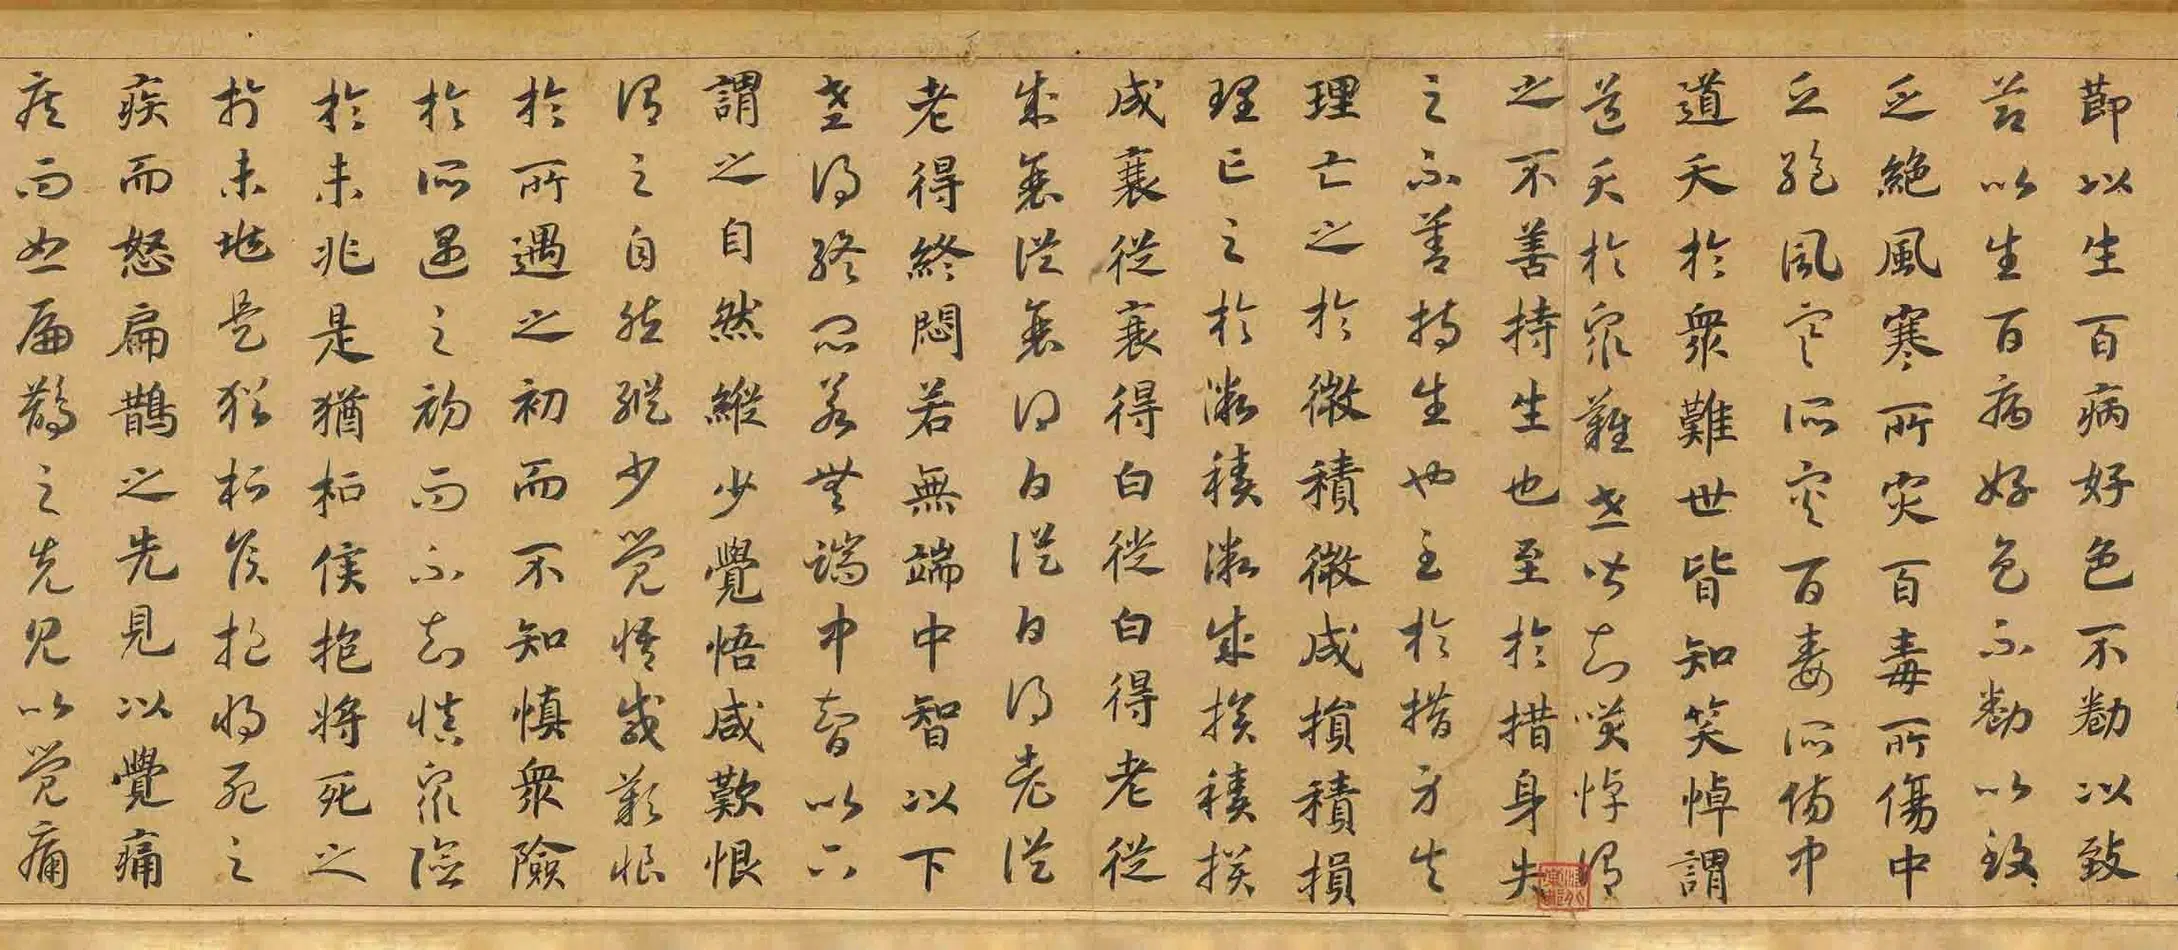 節以生百病好色不勌以致
節以生百病好色不勌以致
乏絕風寒所災百毒所傷中
乏絕風寒所災百毒所傷中
道夭於衆難世皆知笑悼謂
道夭於衆難世皆知笑悼謂
之不善持生也至於措身失
之不善持生也至於措身失
理亡之於微積微成損積損
理亡之於微積微成損積損
成衰從衰得白從白得老從
成衰從衰得白從白得老從
老得終悶若無端中智以下
老得終悶若無端中智以下
謂之自然縱少覺悟咸歎恨
謂之自然縱少覺悟咸歎恨
於所遇之初而不知慎衆險
於所遇之初而不知慎衆險
於未兆是猶桓侯抱將死之
於未兆是猶桓侯抱將死之
疾而怒扁鵲之先見以覺痛
疾而怒扁鵲之先見以覺痛